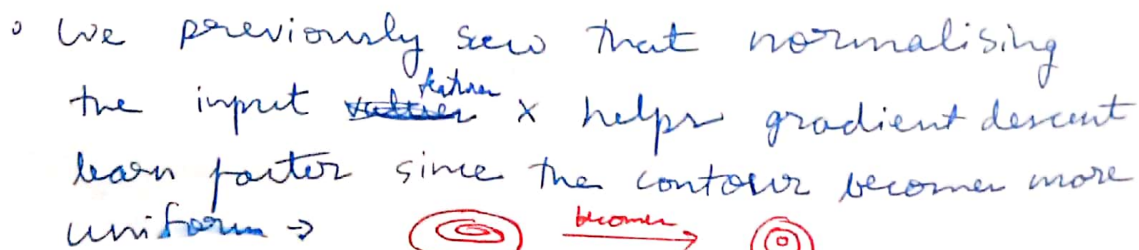 ° We previously saw that normalising
the input features x helps gradient descent
learn faster since the contour becomes more
uniform → becomes